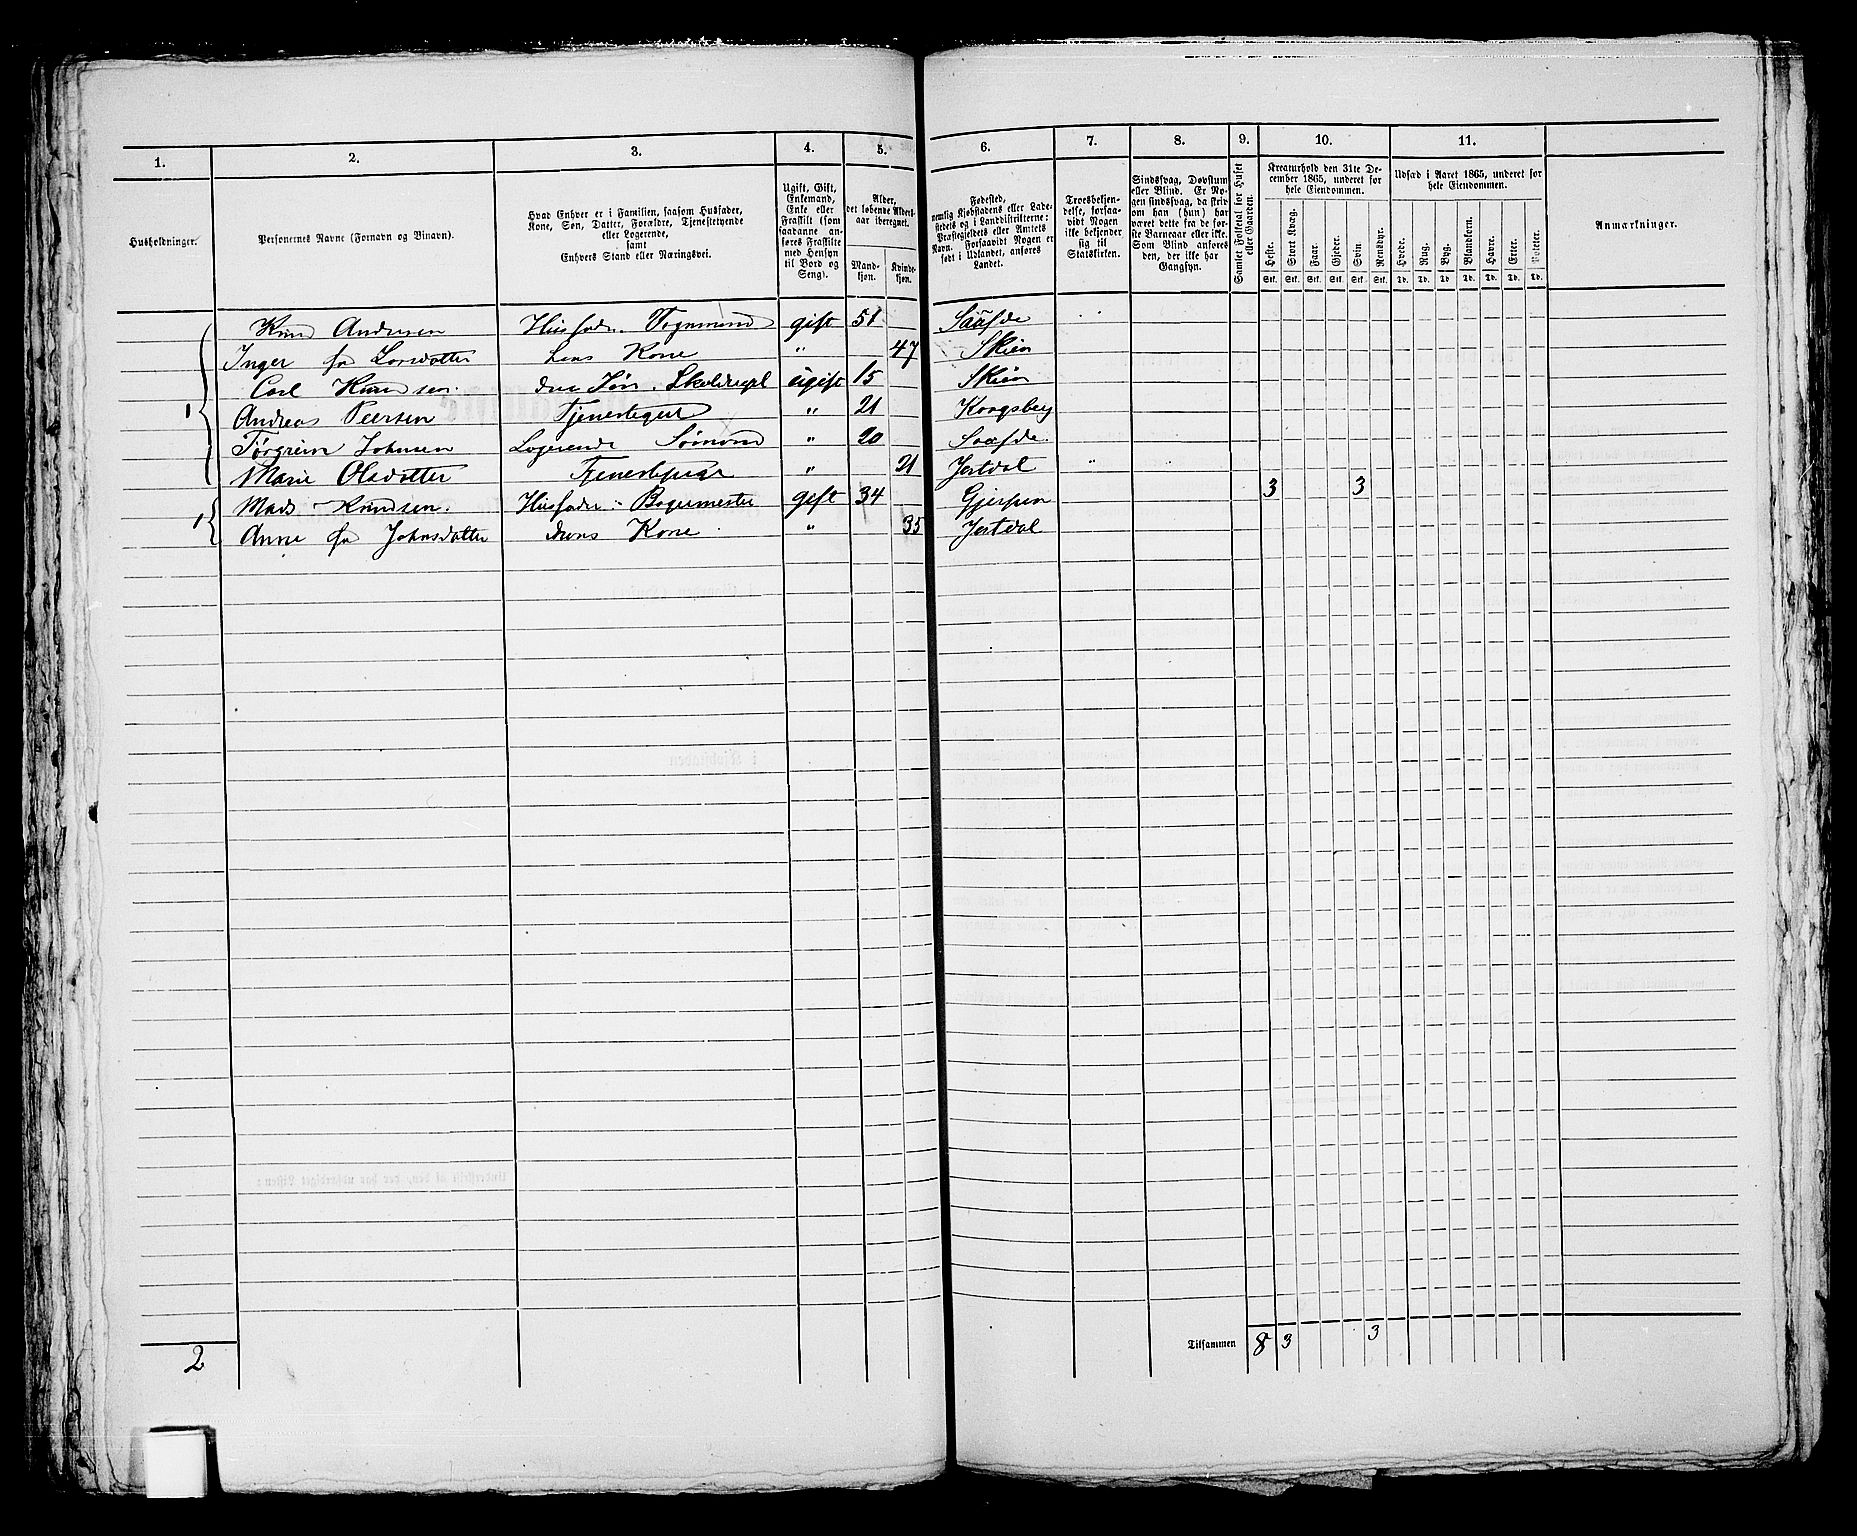 1. 2. 3. 4. 5. 6. 7. 8. 9. 10. 11.
Husholdninger.
Personernes Navne (Fornavn og Binavn).
Hvad Enhver er i Familien, saasom Husfader,
Kone, Søn, Datter, Forældre, Tjenestetyende
eller Logerende,
samt
Enhvers Stand eller Næringsvei.
Ugift, Gift,
Enkemand,
Enke eller
Fraskilt (som
saadanne an-
føres Fraskilte
med Hensyn
til Bord og
Seng).
Alder,
det løbende Alders-
aar iberegnet.
Mand-
kjøn.
Kvinde-
kjøn.
Fødested,
nemlig Kjøbstadens eller Lade-
stedets og i Landdistrikterne:
Præstegjeldets eller Amtets
Navn. Forsaavidt Nogen er
født i Udlandet, anføres
Landet.
Troesbekjen-
delse, forsaa-
vidt Nogen
ikke bekjender
sig til
Statskirken.
Sindssvag, Døvstum
eller Blind. Er No-
gen sindssvag, da skriv
om han (hun) har
været dette fra de før-
ste Barneaar eller ikke.
Som Blind anføres
den, der ikke har
Gangsyn.
Samlet Folketal for Huset
eller Gaarden.
Kreaturhold den 31te De-
cember 1865, underet for
hele Eiendommen.
Heste. Stort Kvæg. Faar. Gjeder. Svin Rensdyr.
Stk. Stk. Stk. Stk. Stk. Stk.
Udsæd i Aaret 1865, underet for
hele Eiendommen.
Hvede. Rug. Byg. Blandkorn. Havre. Erter. Poteter.
Td. Td. Td. Td. Td. Td. Td.
Anmærkninger.
1 Knud Andersen Husfader. Vognmand gift 51 Saüfde
Inger Larsdatter hans Kone " 47 Skien
Carl Knudsen. Søn. ugift 15 Skien
Andreas Peersen Tjenestegut " 21 Kongsberg
Torgrim Johnsen Logerende " 20 Saüfde.
Marie Olsdatter Tjenestepige " 21 Jatdal
1 Mads Knudsen. Husfader Bagermester gift 34 Gjerpen 3 3
Anne Johnsdatter hans Kone " 35 Jatdal
2
Tilsammen 8 3 3